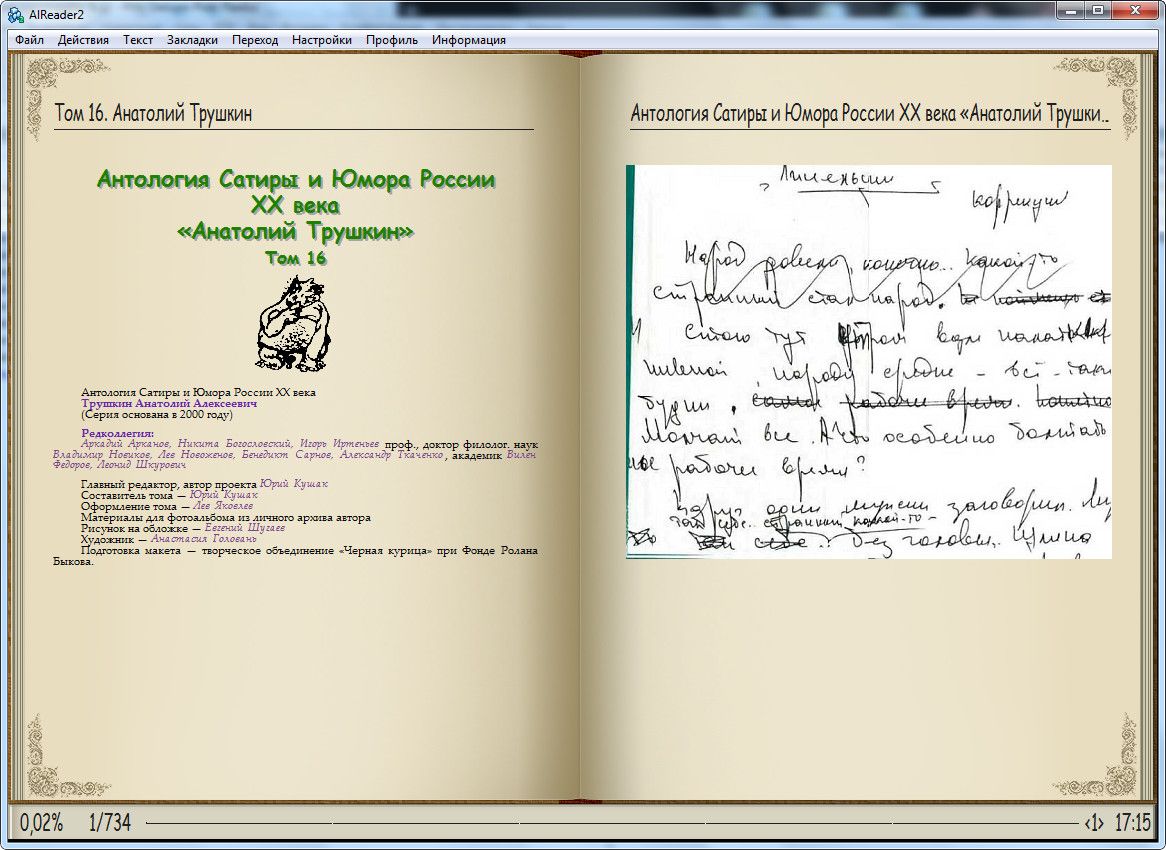 AlReader2
Файл Действия Текст Закладки Переход Настройки Профиль Информация
Том 16. Анатолий Трушкин
Антология Сатиры и Юмора России
XX века
«Анатолий Трушкин»
Том 16
Антология Сатиры и Юмора России XX века
Трушкин Анатолий Алексеевич
(Серия основана в 2000 году)
Редколлегия:
Аркадий Арканов, Никита Богословский, Игорь Иртеньев проф., доктор филолог. наук
Владимир Новиков, Лев Новоженов, Бенедикт Сарнов, Александр Ткаченко, академик Вилен
Федоров, Леонид Шкурович
Главный редактор, автор проекта Юрий Кушак
Составитель тома — Юрий Кушак
Оформление тома — Лев Яковлев
Материалы для фотоальбома из личного архива автора
Рисунок на обложке — Евгений Шугаев
Художник — Анастасия Головань
Подготовка макета — творческое объединение «Черная курица» при Фонде Ролана
Быкова.
Антология Сатиры и Юмора России XX века «Анатолий Трушки..
Народ конечно.. какой-то
странный стал народ.
Стою тут
народу средне - всё-таки
будни.
Молчат все. А что особенно болтать
рабочее время?
один мужик заговорил.
там себе.. странный какой-то -
без головы.
0,02% 1/734
‹1› 17:15